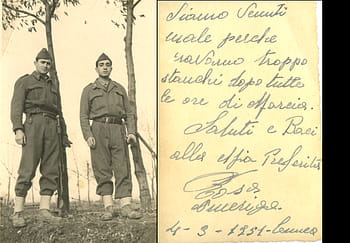 Siamo Venuti
male perche
ravamo troppo
stanchi dopo tutte
le ore di Marcia.
Saluti e Baci
alla Mia Preferita
4-3-1951-